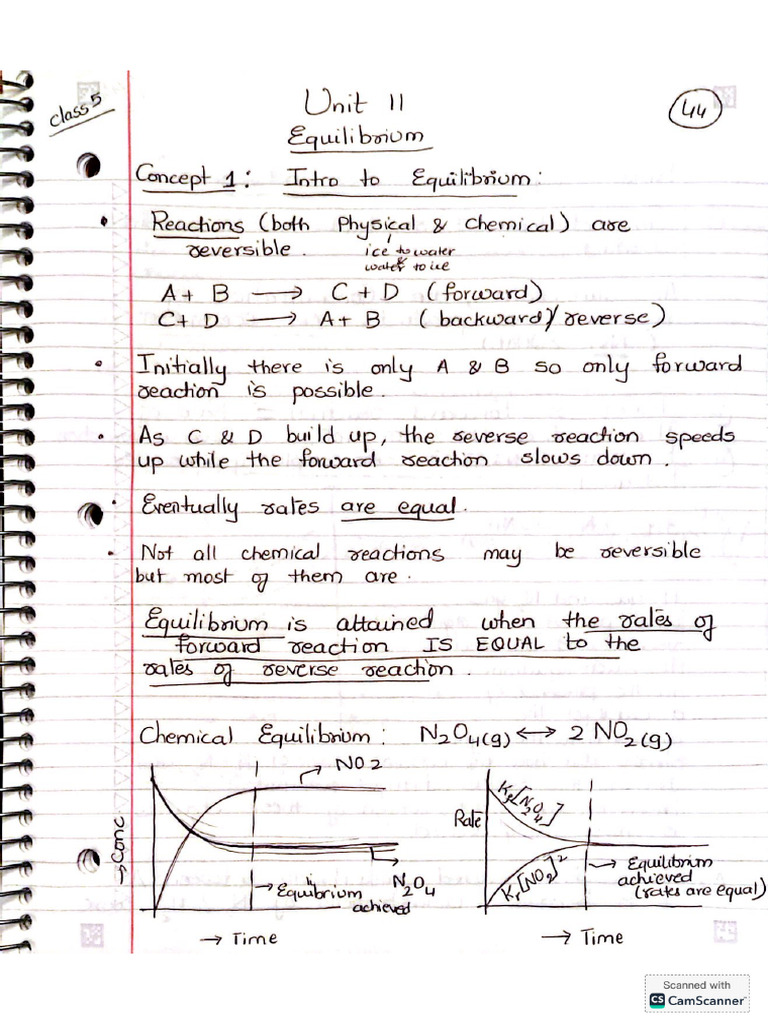 class 5
Unit 11
44
Equilibrium
Concept 1: Intro to Equilibrium:
• Reactions (both Physical & Chemical) are
reversible. ice to water
& water to ice
A + B → C + D (forward)
C + D → A + B (backward/reverse)
• Initially there is only A & B so only forward
reaction is possible.
• As C & D build up, the reverse reaction speeds
up while the forward reaction slows down.
• Eventually rates are equal.
• Not all chemical reactions may be reversible
but most of them are.
Equilibrium is attained when the rates of
forward reaction IS EQUAL to the
rates of reverse reaction.
Chemical Equilibrium: N2O4(g) ↔ 2 NO2(g)
→ NO2
→ Conc
→ N2O4
→ Equibrium
achieved
→ Time
Rate
Kf[N2O4]
Kr[NO2]²
→ Equilibrium
achieved
(rates are equal)
→ Time
Scanned with
CS CamScanner